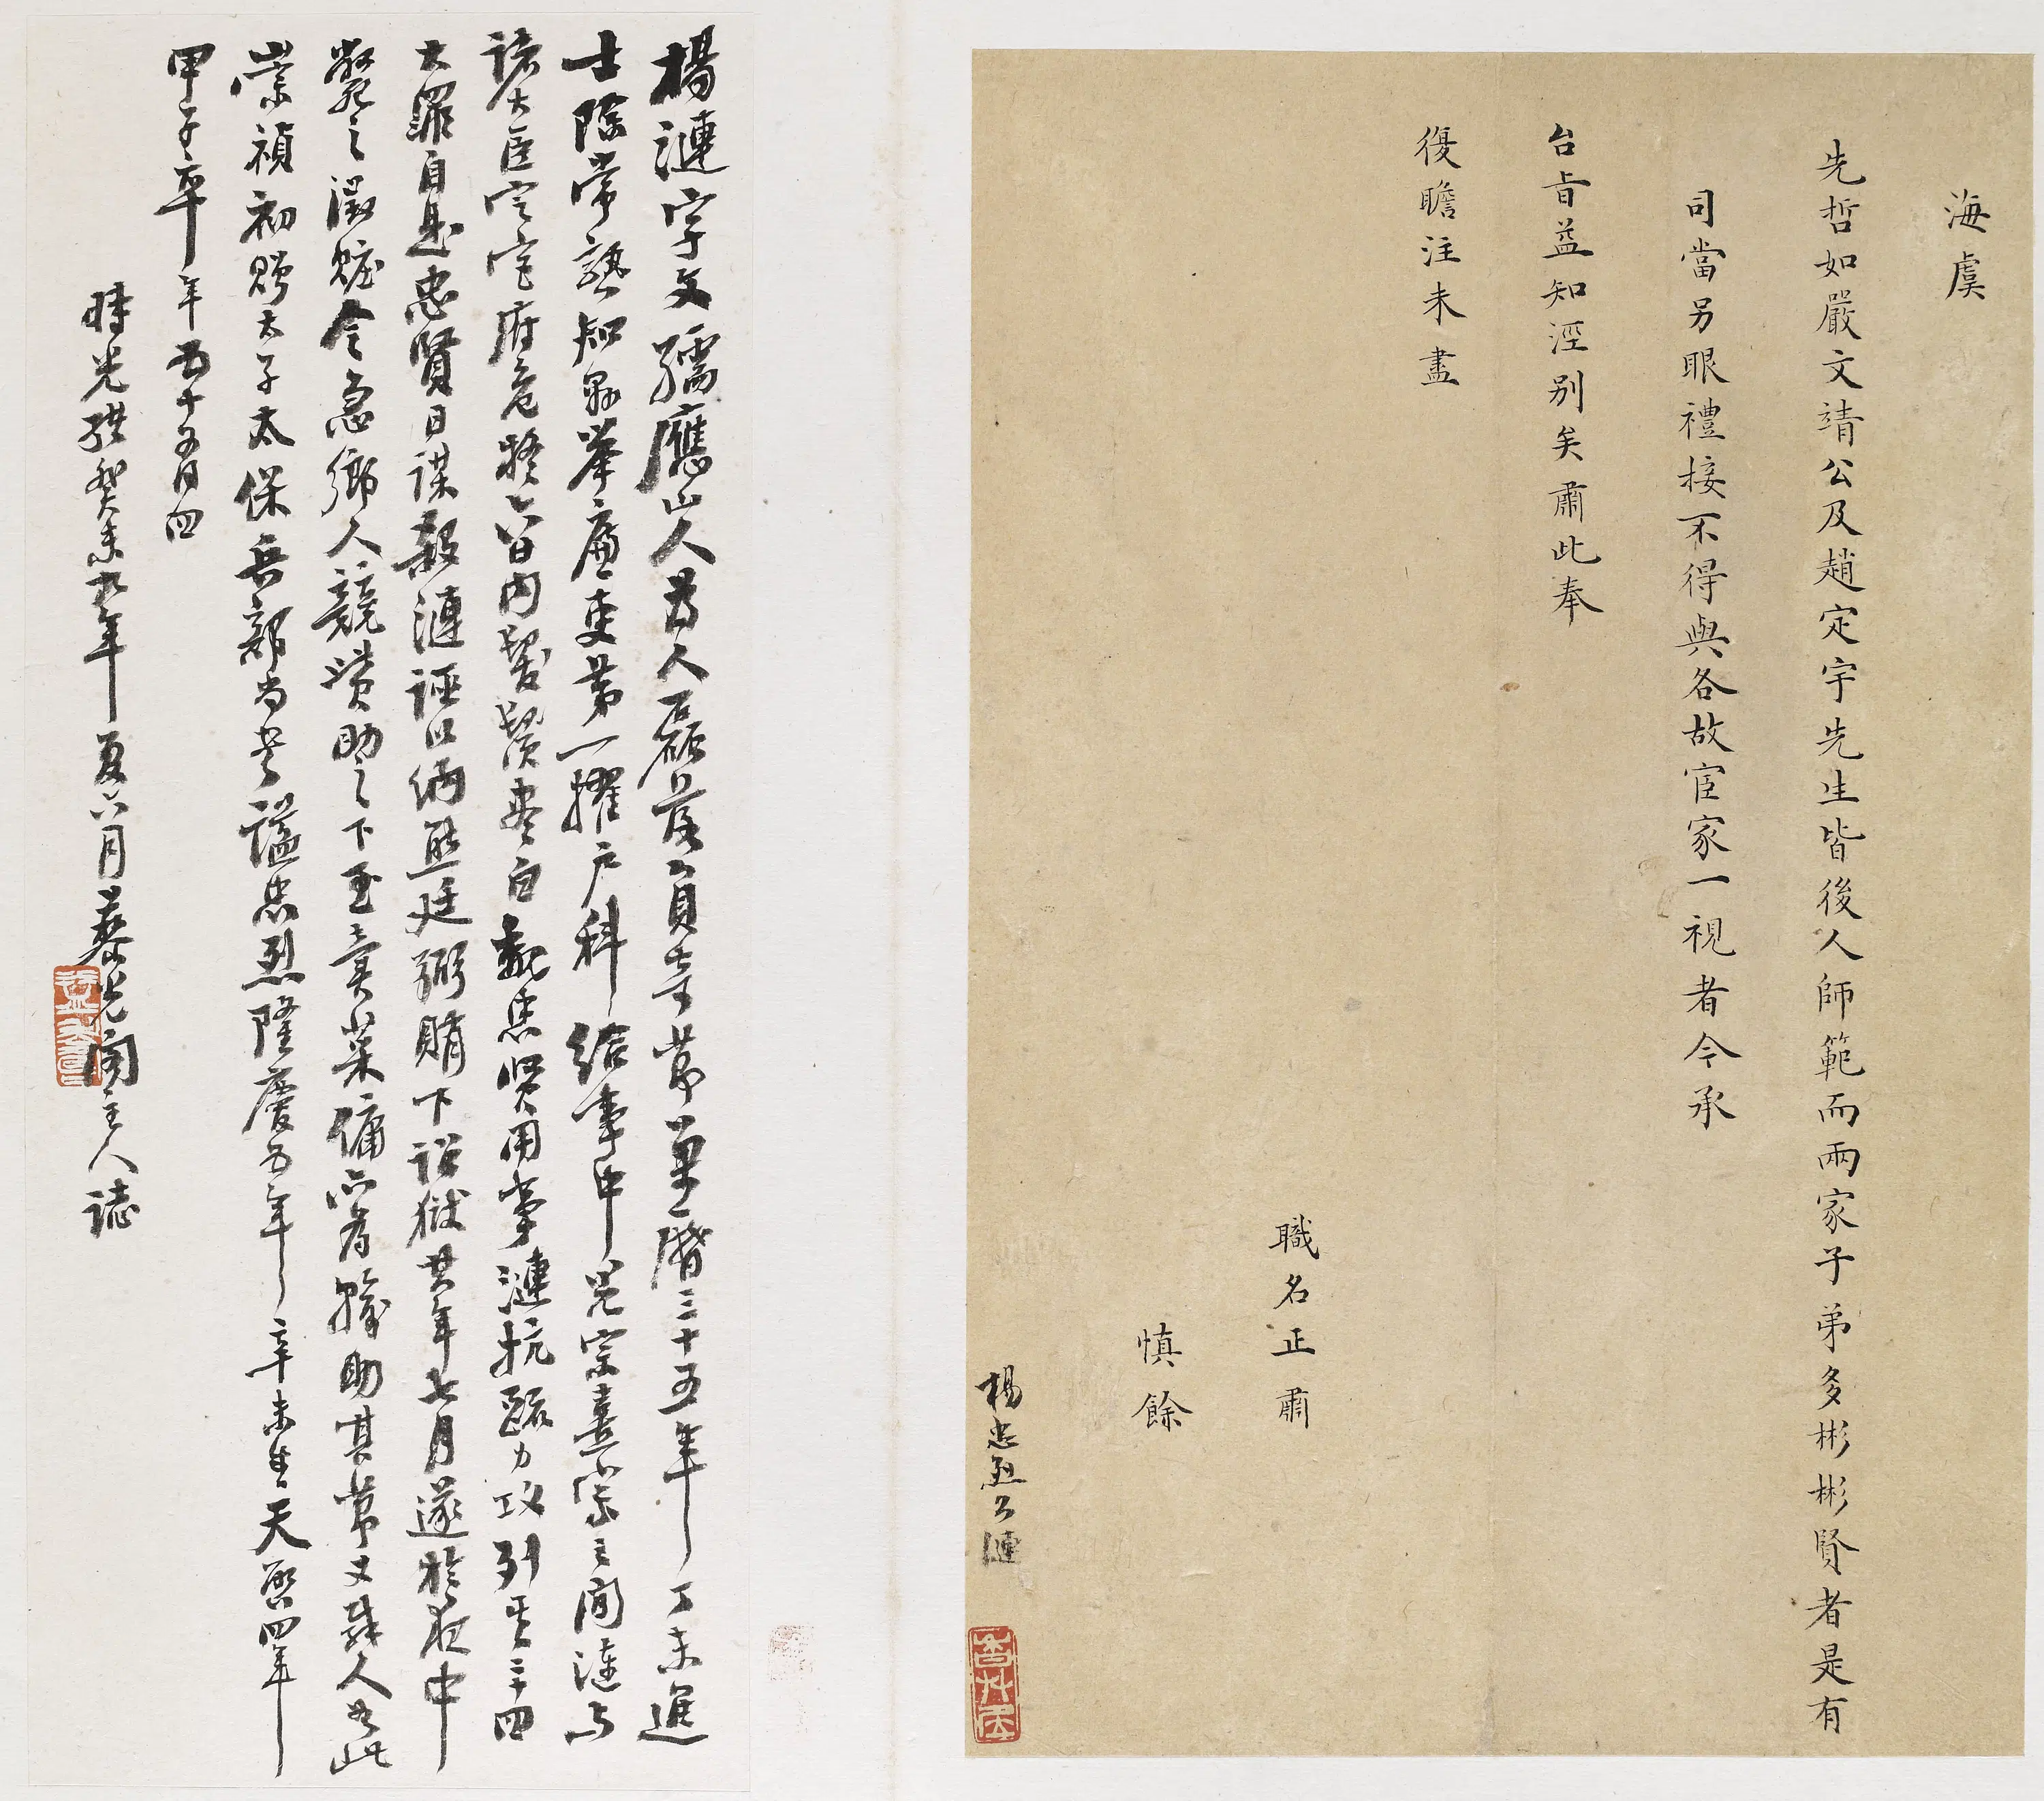 海虞
先哲如嚴文靖公及趙定宇先生皆後人師範而兩家子弟多彬彬賢者是有
司當另眼禮接不得與各故宦家一視者今承
台旨益知涇别矣肅此奉
復瞻注未盡
職名正肅
慎餘
楊忠烈公漣
楊漣字文孺應山人為人磊落負奇節萬曆三十五年丁未進
士除常熟知縣舉廉吏第一擢户科給事中光宗熹宗之間漣与
諸大臣定宫府危疑六日内鬚髮盡白魏忠賢用事漣抗疏力攻列其二十四
大罪自是忠賢日謀殺漣誣以納熊廷弼賄下詔獄其年七月遂於夜中
斃之漣贓令急鄉人競贊助之下至賣菜傭亦為輸助其節文殊人如此
崇禎初贈太子太保兵部尚書謚忠烈隆慶五年辛未生天啟四年
甲子卒年五十有四
時光緒癸未九年夏六月慕光閣主人誌